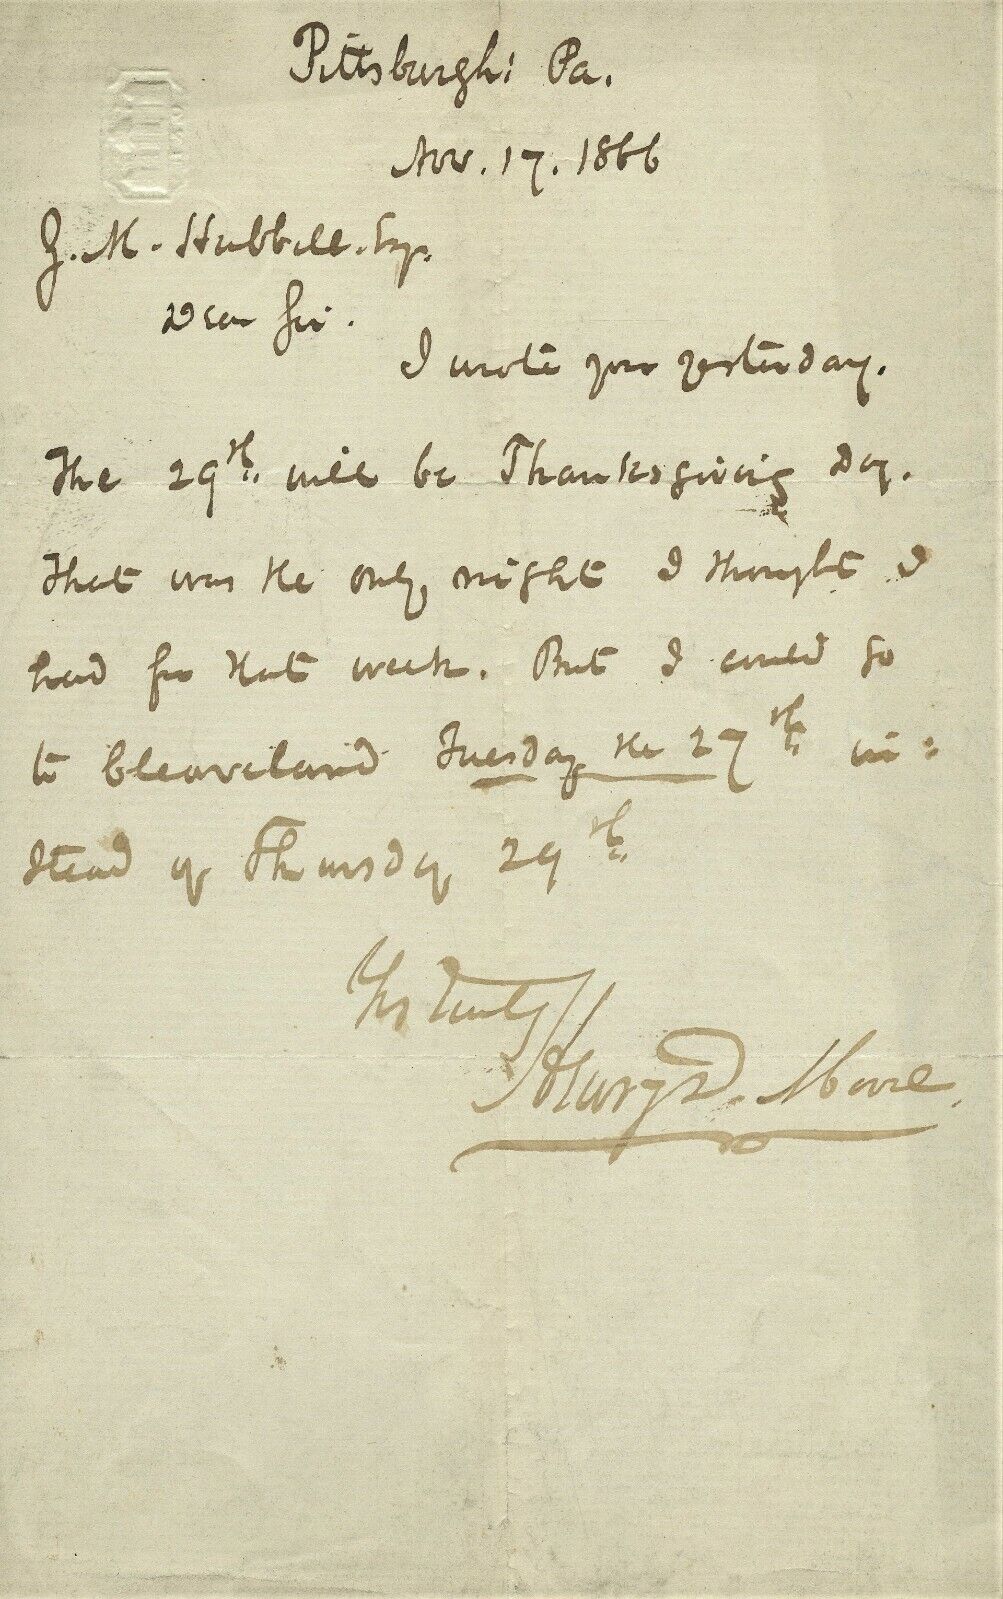 Pittsburgh: Pa.
Nov. 17. 1866
J. M. Hubbell. Esq.
Dear Sir.
I wrote you yesterday.
The 29th. will be Thanksgiving Day.
That was the only night I thought I
had for that week. But I could go
to Cleaveland Tuesday the 27th in=
stead of Thursday 29th.
Yrs truly
Moore.